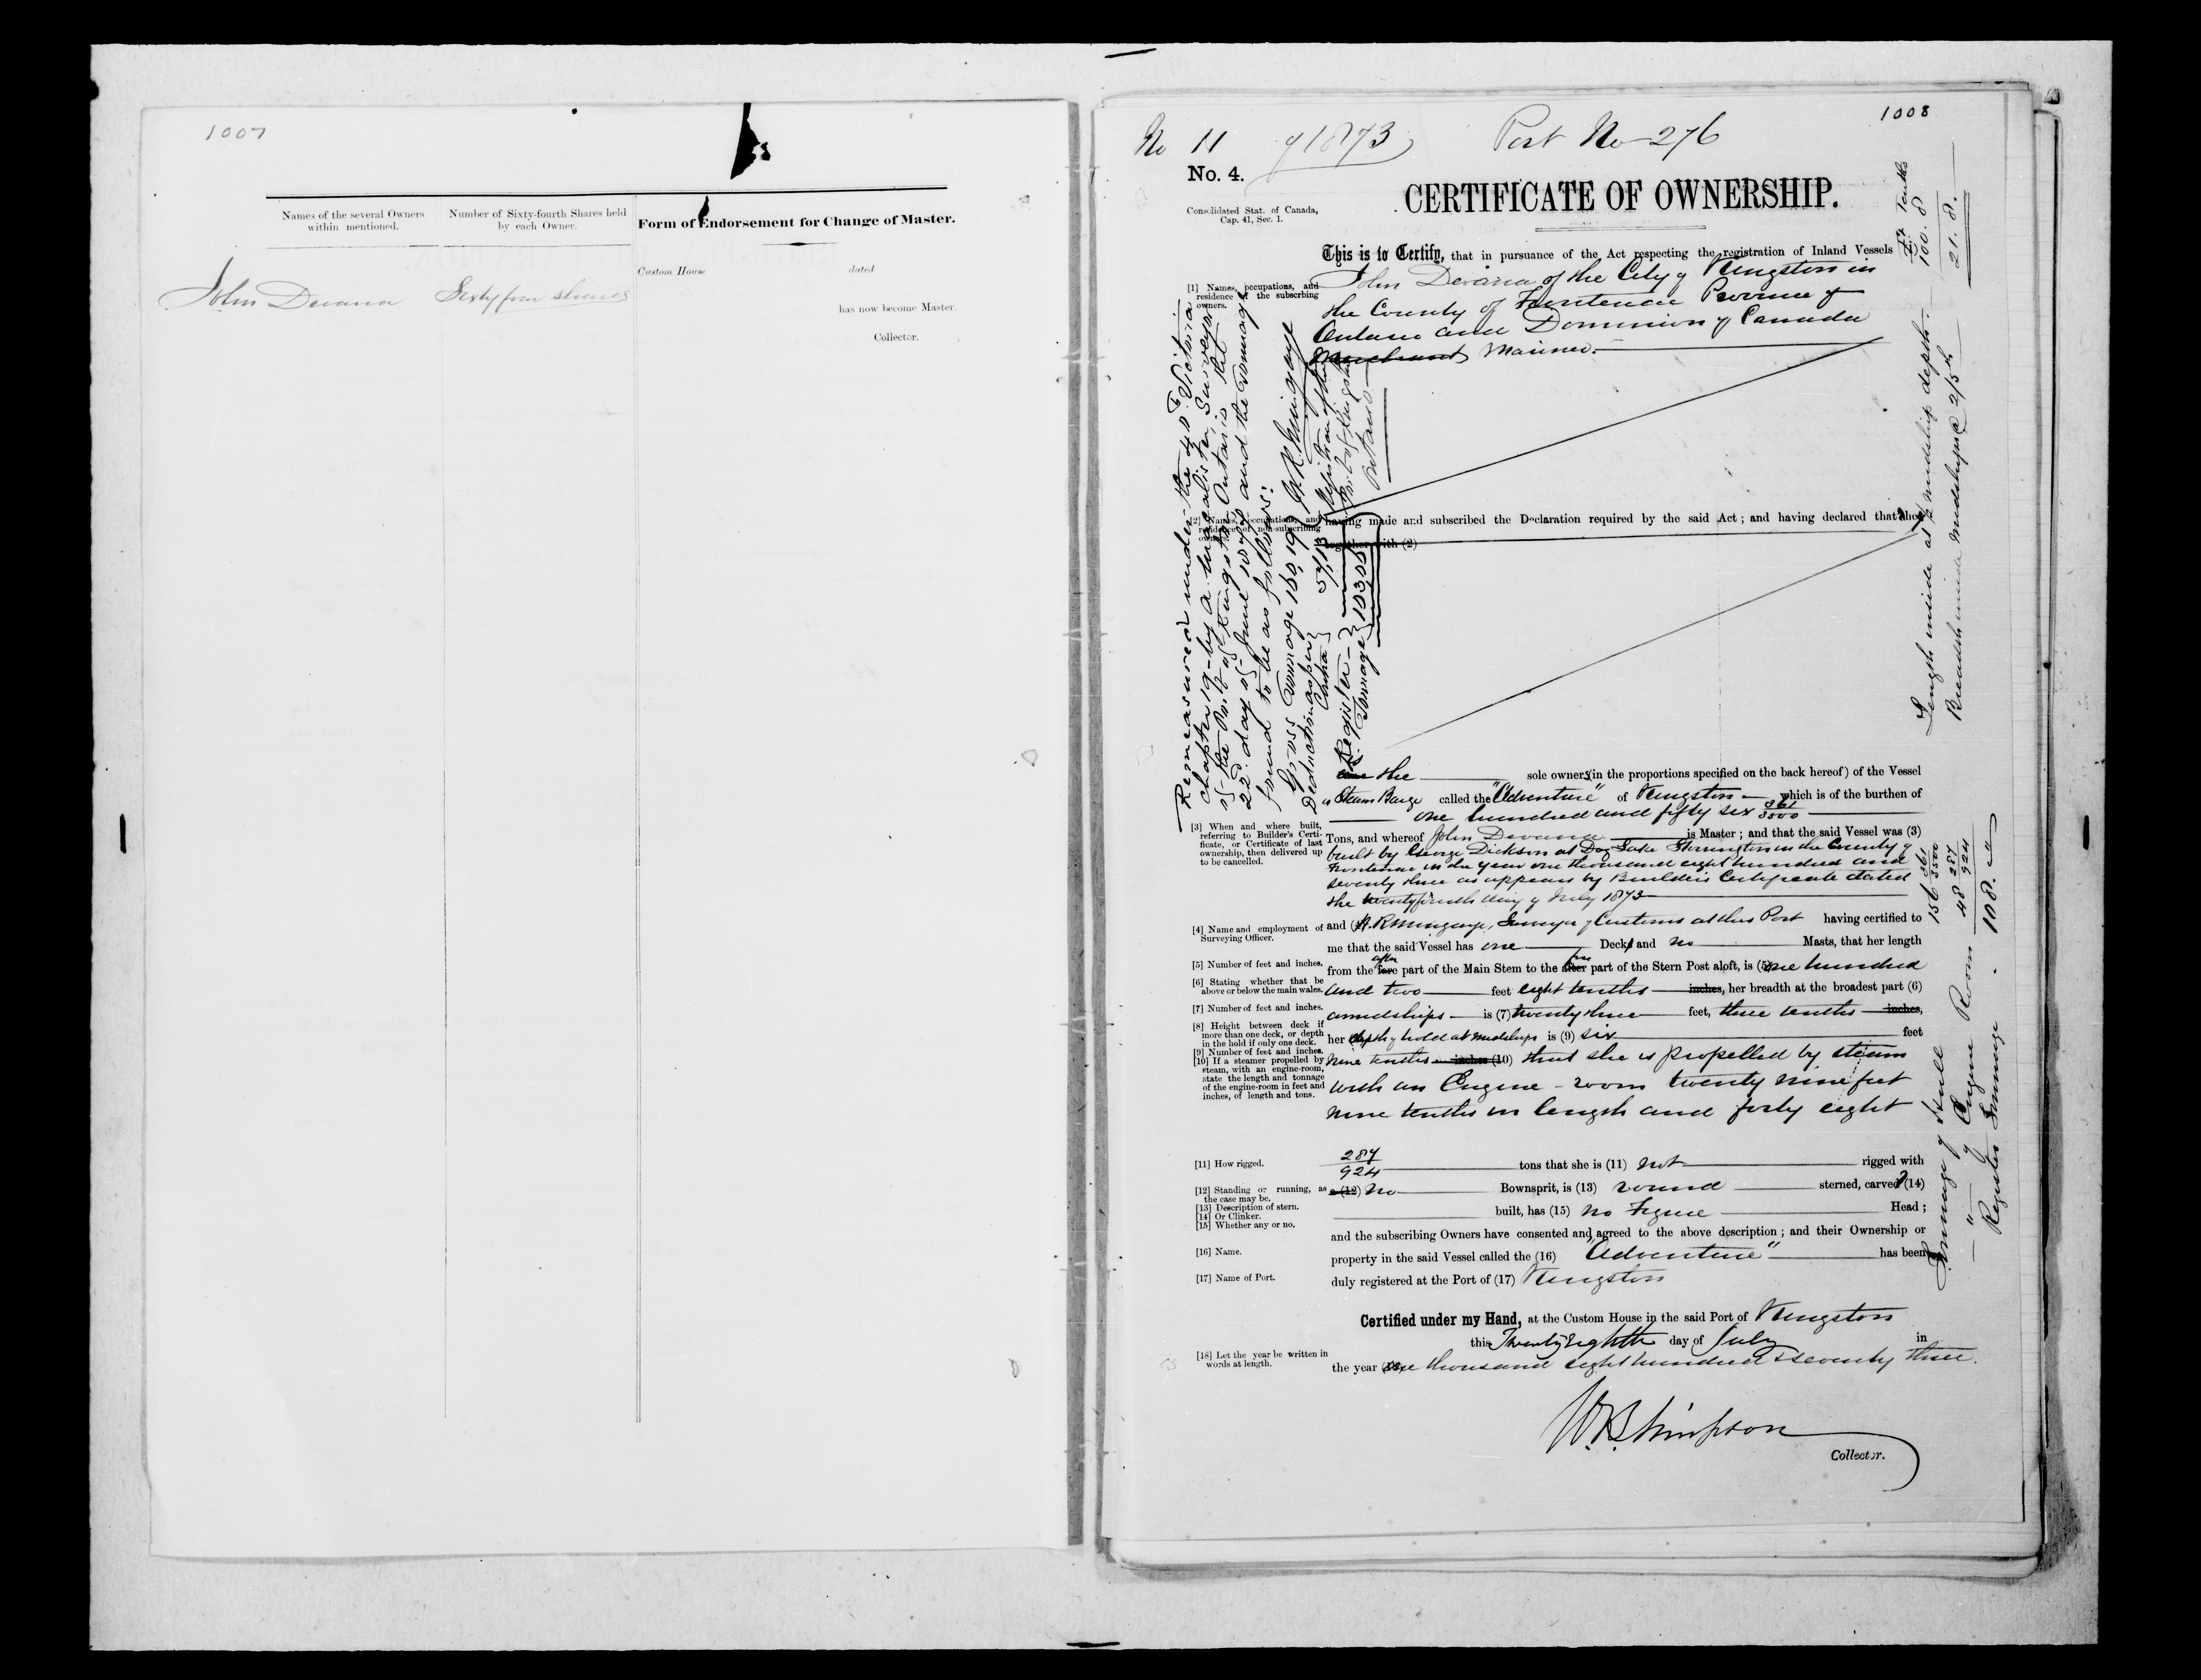 1007
Names of the several Owners within mentioned.
Number of Sixty-fourth Shares held by each Owner.
Form of Endorsement for Change of Master.
John Devana
Sixty four shares
Custom House dated
has now become Master.
Collector.
1008
No 11 of 1873 Port No 276
No. 4.
CERTIFICATE OF OWNERSHIP.
Consolidated Stat. of Canada,
Cap. 41, Sec. 1.
This is to Certify, that in pursuance of the Act respecting the registration of Inland Vessels
[1] Names, occupations, and residence of the subscribing owners.
John Devana of the City of Kingston in
the County of Frontenac Province of
Ontario and Dominion of Canada
Merchant Mariner.
[2] Names, occupations, and residence of non-subscribing owners.
having made and subscribed the Declaration required by the said Act; and having declared that he
together with (2)
is the sole owner (in the proportions specified on the back hereof) of the Vessel
a Steam Barge called the "Adventure" of Kingston which is of the burthen of
one hundred and fifty six 361/3500
[3] When and where built, referring to Builder's Certificate, or Certificate of last ownership, then delivered up to be cancelled.
Tons, and whereof John Devana is Master; and that the said Vessel was (3)
built by George Dickson at Dog Lake Storrington in the County of
Frontenac in the year one thousand eight hundred and
seventy three as appears by Builder's Certificate dated
the twenty fourth day of July 1873
[4] Name and employment of Surveying Officer.
and (4) H. R. Mingaye, Surveyor of Customs at this Port having certified to
me that the said Vessel has one Deck and no Masts, that her length
[5] Number of feet and inches.
after fore
from the fore part of the Main Stem to the after part of the Stern Post aloft, is (5) one hundred
[6] Stating whether that be above or below the main wales.
and two feet eight tenths inches, her breadth at the broadest part (6)
[7] Number of feet and inches.
amidships is (7) twenty three feet, three tenths inches,
[8] Height between deck if more than one deck, or depth in the hold if only one deck.
her depth of hold at midships is (9) six feet
[9] Number of feet and inches.
[10] If a steamer propelled by steam, with an engine-room, state the length and tonnage of the engine-room in feet and inches, of length and tons.
nine tenths inches (10) that she is propelled by steam
with an Engine-room twenty nine feet
nine tenths in length and forty eight
[11] How rigged.
287/924 tons that she is (11) not rigged with
[12] Standing or running, as the case may be.
a (12) no Bownsprit, is (13) round sterned, carvel (14)
[13] Description of stern.
[14] Or Clinker.
[15] Whether any or no.
built, has (15) no Figure Head;
and the subscribing Owners have consented and agreed to the above description; and their Ownership or
[16] Name.
property in the said Vessel called the (16) "Adventure" has been
[17] Name of Port.
duly registered at the Port of (17) Kingston
Certified under my Hand, at the Custom House in the said Port of Kingston
this Twenty Eighth day of July in
[18] Let the year be written in words at length.
the year (18) one thousand eight hundred & seventy three.
W. B. Simpson
Collector.
Remeasured under the 40 Victoria
chapter 19 by
of the Port of Kingston Ontario
22d day of June and the Tonnage
found to be as follows:
Gross Tonnage 160,19
Deduction as per 57,13
Register Tonnage 103,06
H. R. Mingaye
Port of Kingston
Ontario
Ft Tenths
Length inside at ½ midship depth 100.8
Breadth inside midships @ 2/5th 21.8.
Tonnage of Hull 156 361/3500
" of Engine Room 48 287/924
Register Tonnage 108. "